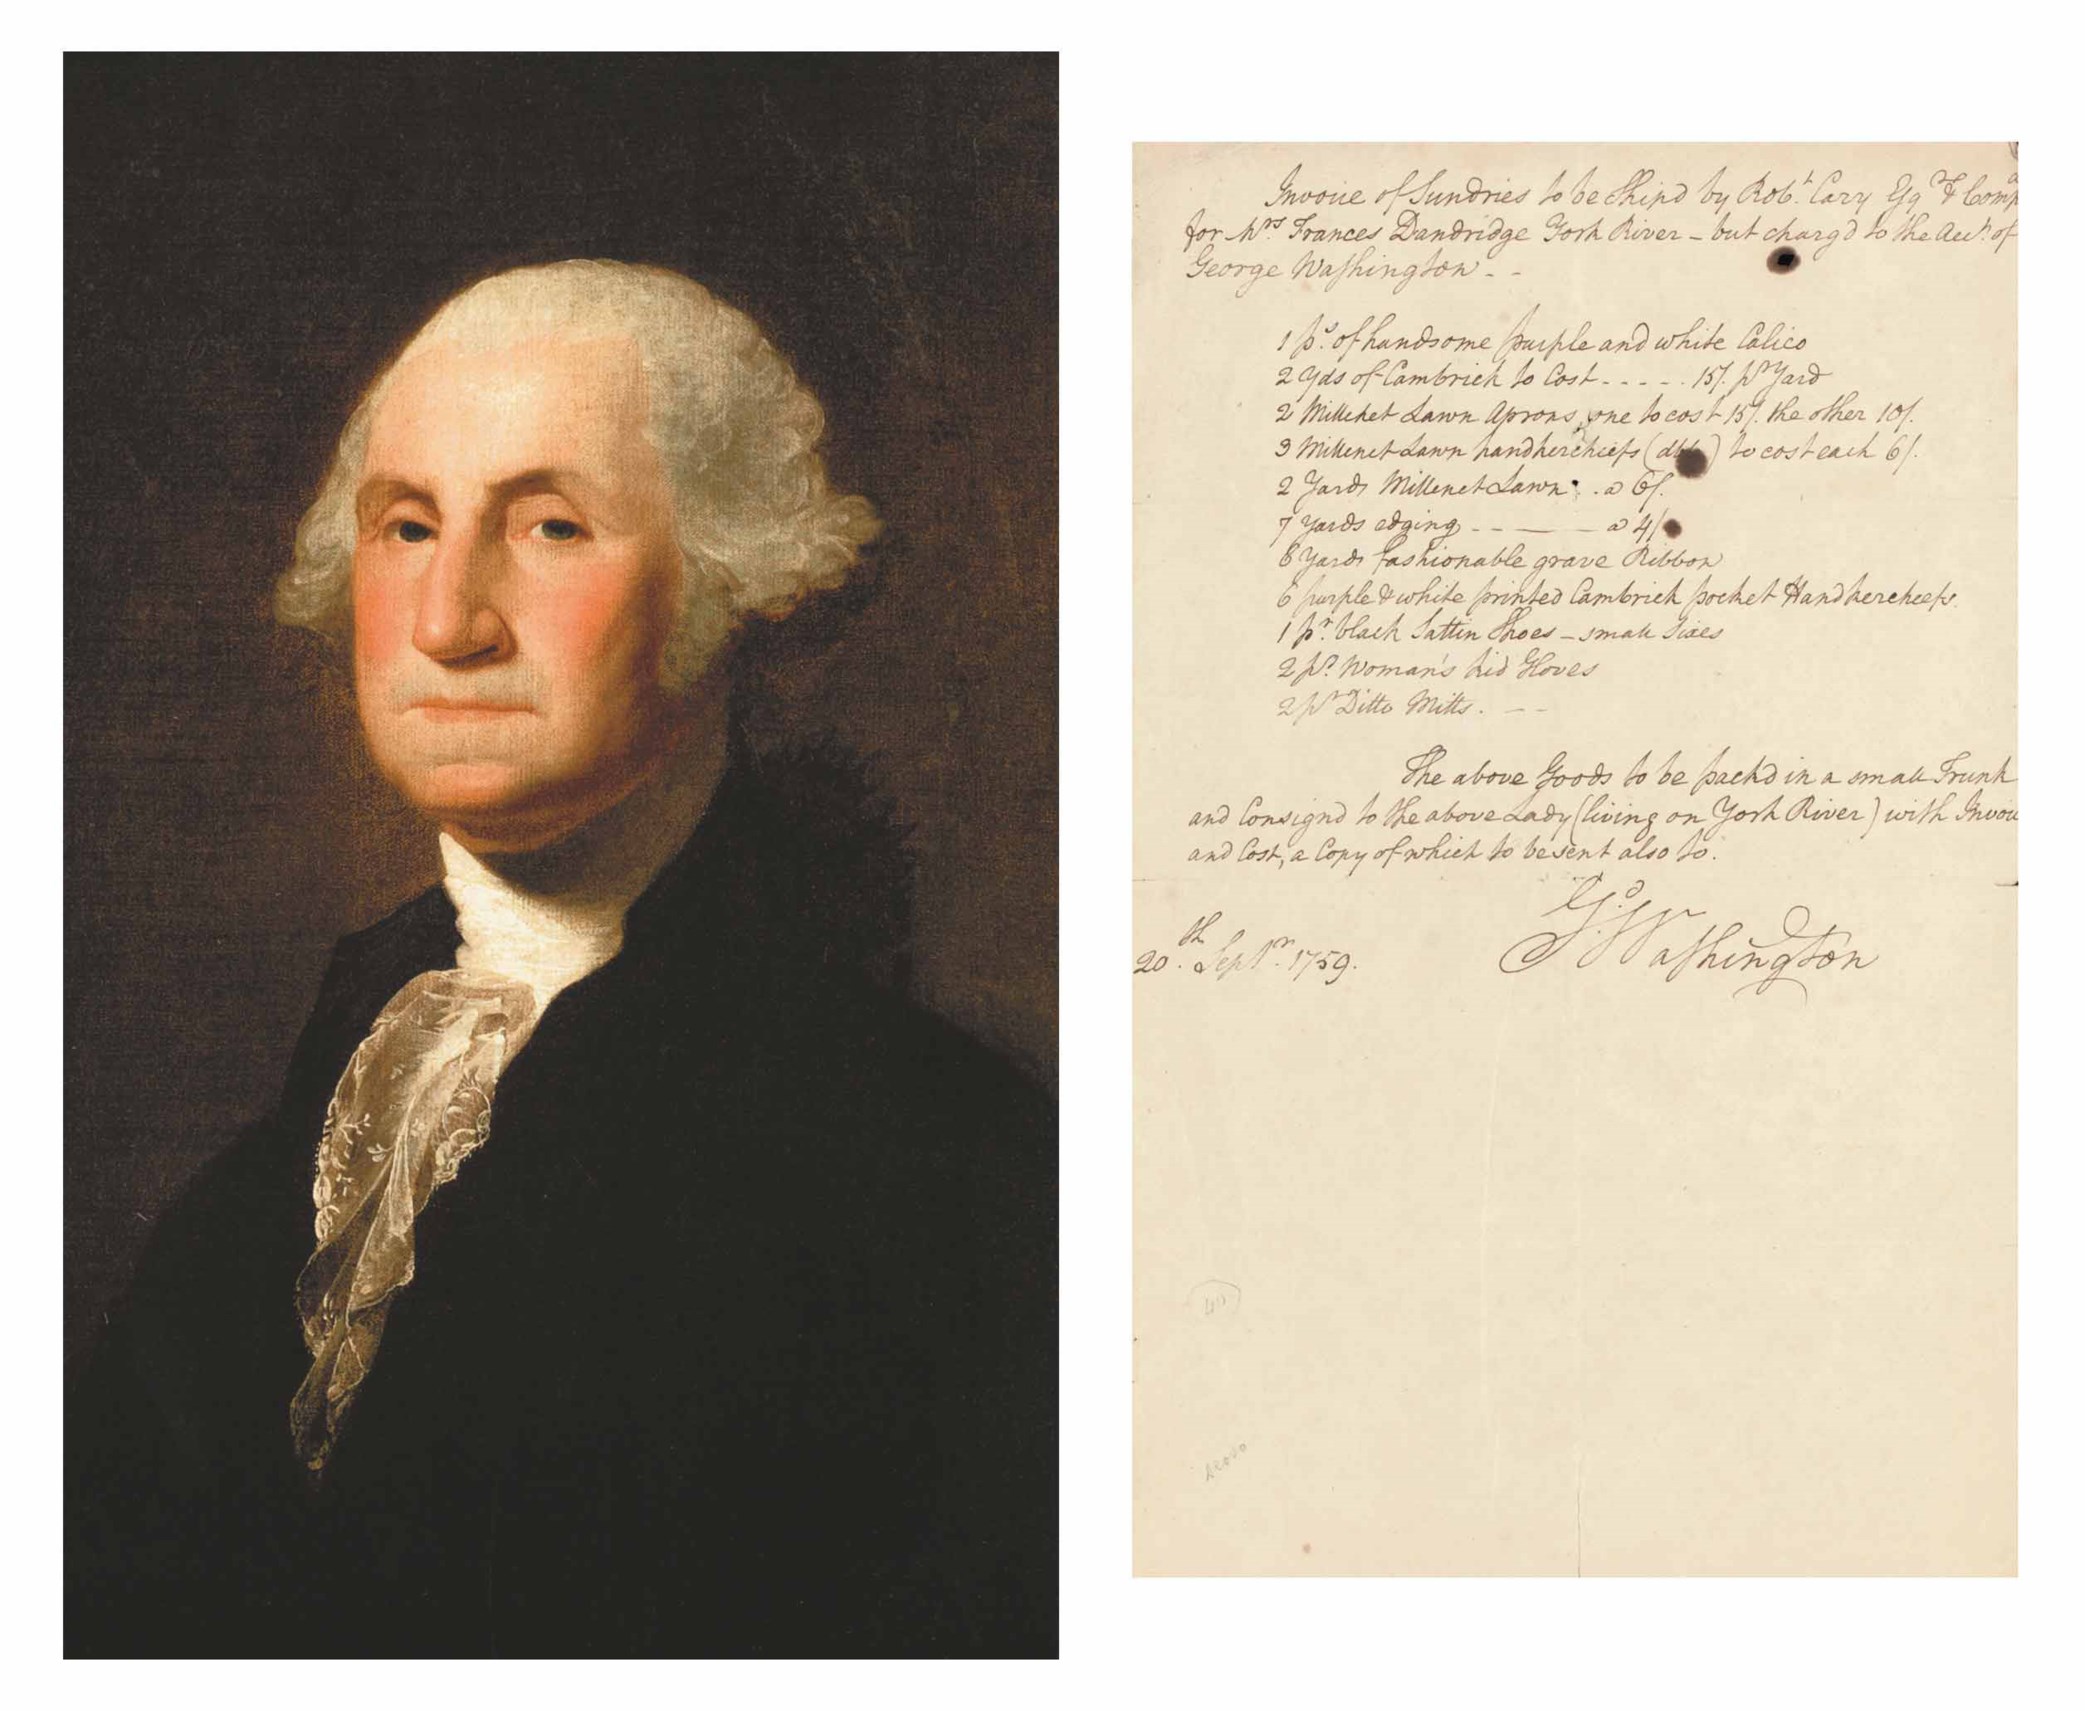 Invoice of Sundries to be Shipd by Robt. Cary Esqr. & Compa
for Mrs. Frances Dandridge York River – but chargd to the Acct. of
George Washington - -
1 ps. of handsome purple and white Calico
2 Yds of Cambrick to Cost - - - - . 15/. pr Yard
2 Millenet Lawn Aprons, one to cost 15/. the other 10/.
3 Millenet Lawn handkerchiefs ( ) to cost each 6/.
2 Yards Millenet Lawn . . a 6/.
7 Yards edging - - — — a 4/
8 Yards fashionable grave Ribbon
6 purple & white printed Cambrick pocket Handkercheefs.
1 pr. black Sattin Shoes – small Sizes
2 pr. Woman's kid Gloves
2 pr Ditto Mitts. — –
The above Goods to be packd in a small Trunk
and Consignd to the above Lady (living on York River) with Invoi
and Cost, a Copy of which to be sent also to.
Go. Washington
20th. Septr. 1759.
40